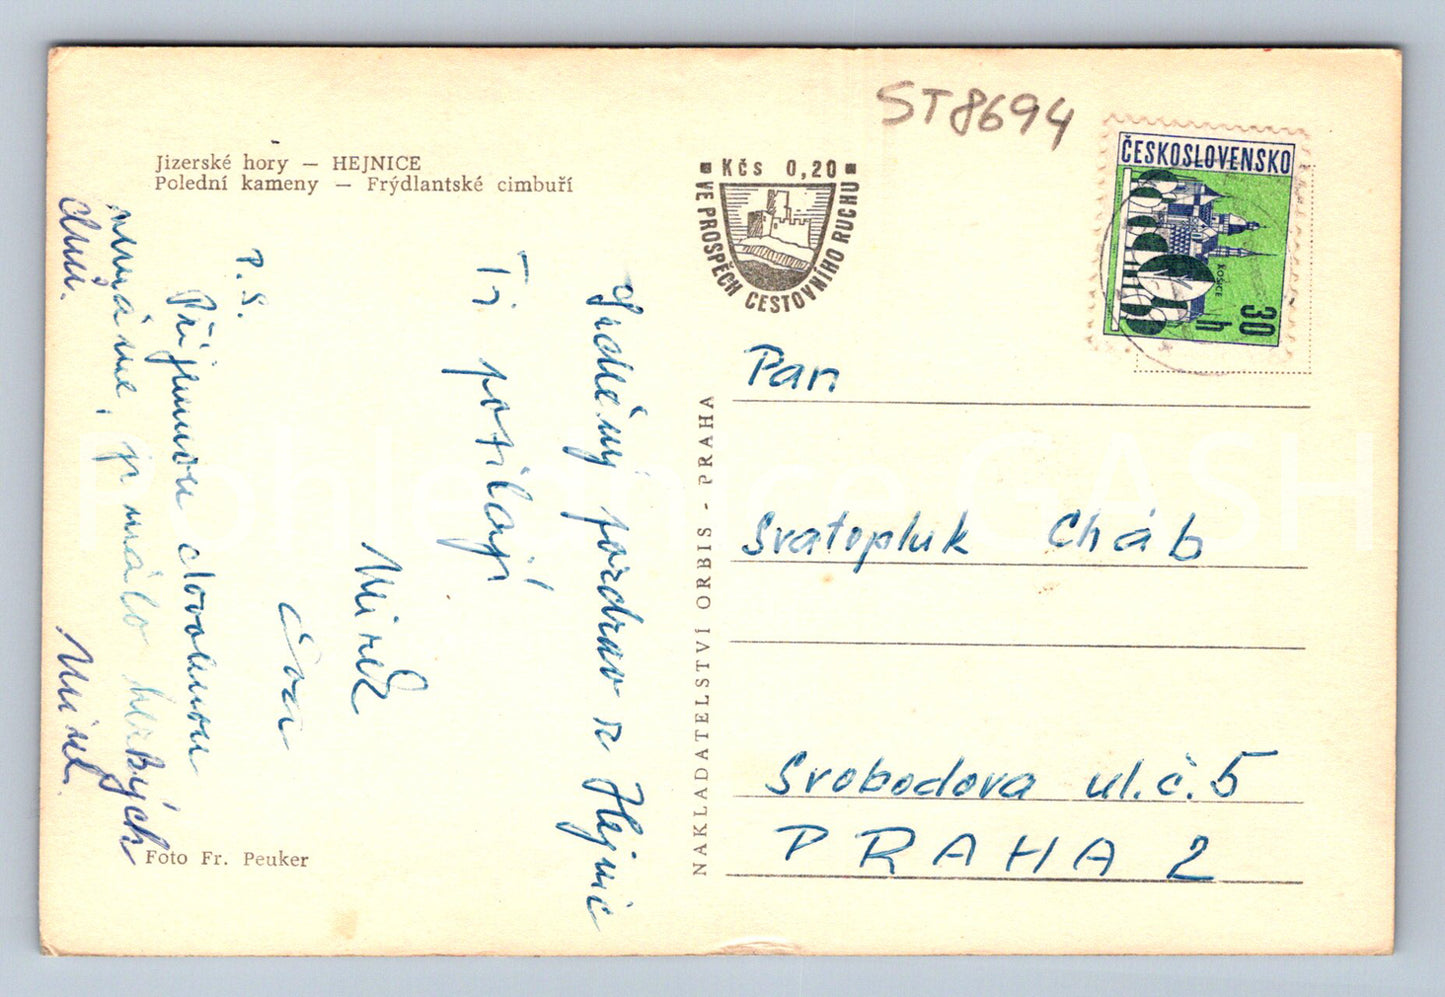 ST8694
Jizerské hory — HEJNICE
Polední kameny — Frýdlantské cimbuří
Kčs 0,20
VE PROSPĚCH CESTOVNÍHO RUCHU
ČESKOSLOVENSKO
KOŠICE
30 h
Srdečný pozdrav z Hejnic
Ti posílají
Mirek
Eva
P.S.
Příjemnou dovolenou
nemáme, je málo hezkých
dnů.
Mirek
Foto Fr. Peuker
NAKLADATELSTVÍ ORBIS - PRAHA
Pan
Svatopluk Cháb
Svobodova ul. č. 5
PRAHA 2
Pohlednice GASH